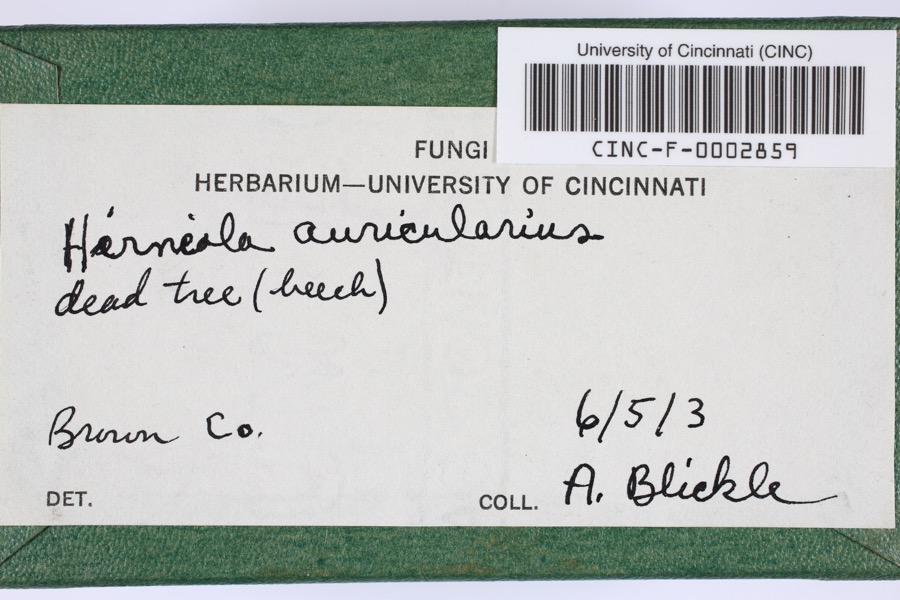 University of Cincinnati (CINC)
CINC-F-0002859
FUNGI
HERBARIUM—UNIVERSITY OF CINCINNATI
Hirneola auricularius
dead tree (beech)
Brown Co.
6/5/3
DET.
COLL. A. Blickle